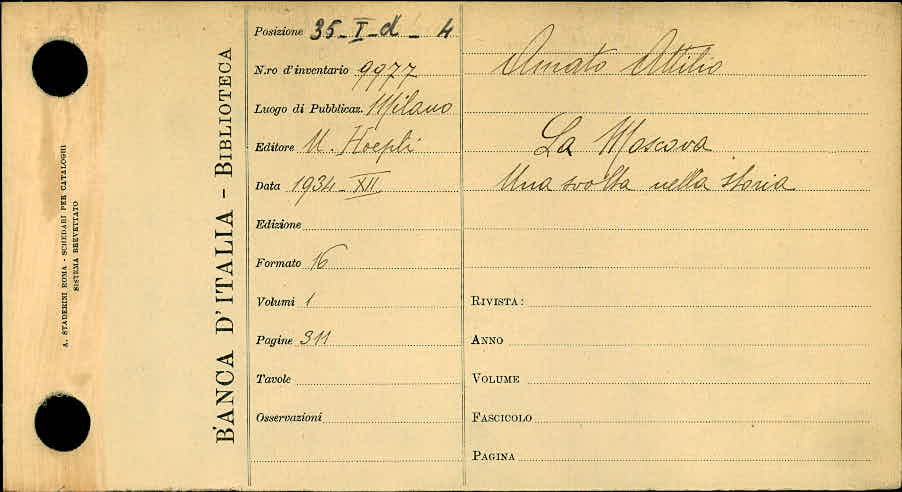 A. STADERINI ROMA - SCHEDARI PER CATALOGHI
SISTEMA BREVETTATO
BANCA D'ITALIA - BIBLIOTECA
Posizione 35-I-d-4
N.ro d'inventario 9977
Luogo di Pubblicaz. Milano
Editore U. Hoepli
Data 1934-XII.
Edizione
Formato 16
Volumi 1
Pagine 311
Tavole
Osservazioni
Amato Attilio
La Moscova
Una svolta nella storia
RIVISTA:
ANNO
VOLUME
FASCICOLO
PAGINA